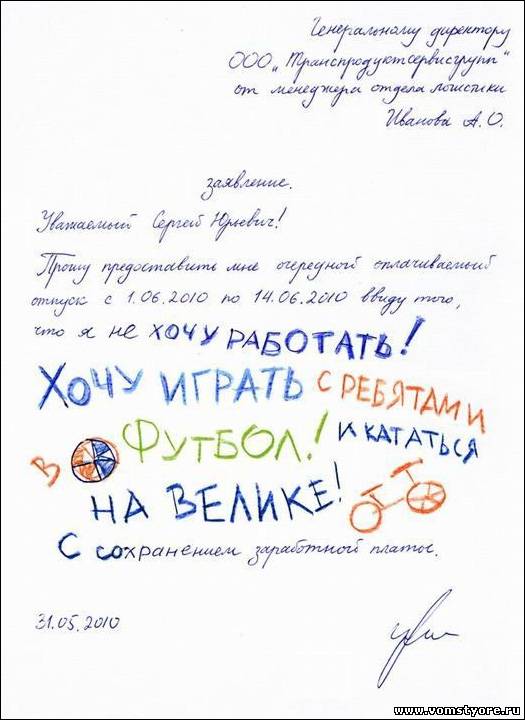 Генеральному директору
ООО „Транспродуктсервисгрупп"
от менеджера отдела логистики
Иванова А.О.
заявление.
Уважаемый Сергей Юльевич!
Прошу предоставить мне очередной оплачиваемый
отпуск с 1.06.2010 по 14.06.2010 ввиду того,
что я не хочу РАБОТАТЬ!
ХОЧУ ИГРАТЬ С РЕБЯТАМИ
В ФУТБОЛ! И КАТАТЬСЯ
НА ВЕЛИКЕ!
С сохранением заработной платы.
31.05.2010
www.vomstyore.ru